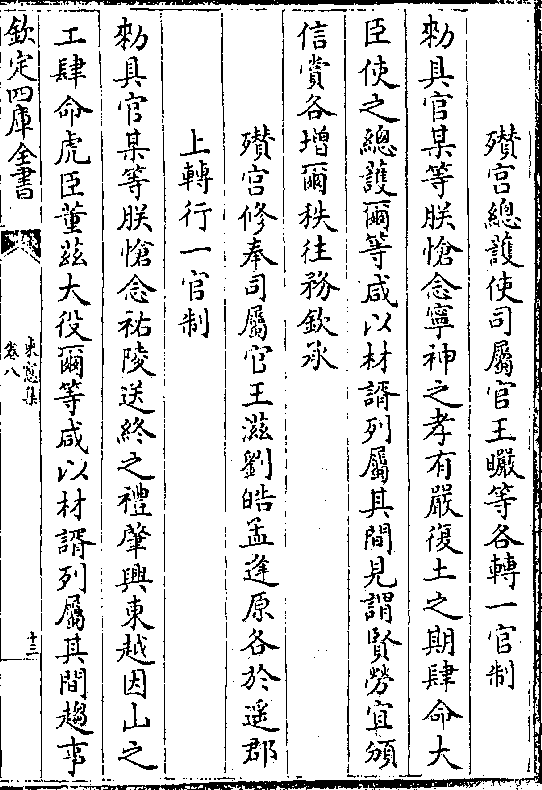 殯宮總護使司屬官王曮等各轉一官制
勑具官某等朕愴念寧神之孝有嚴復土之期肆命大
臣使之總護爾等咸以材諝列屬其間見謂賢勞宜頒
信賞各增爾秩往務欽承
殯宮修奉司屬官王滋劉皓孟逢原各於遥郡
上轉行一官制
勑具官某等朕愴念祐陵送終之禮肇興東越因山之
工肆命虎臣董茲大役爾等咸以材諝列屬其間趨事
欽定四庫全書
東窻集
卷八
十三